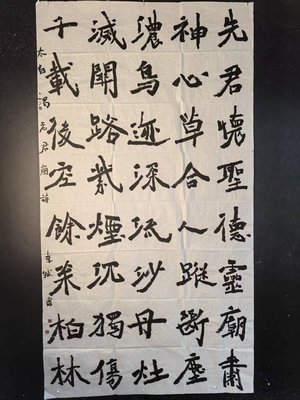 先君懷聖德靈廟肅
神心草合人蹤斷塵
濃鳥迹深流沙丹灶
滅關路紫煙沉獨傷
千載後空餘松柏林
太白謁老君廟詩